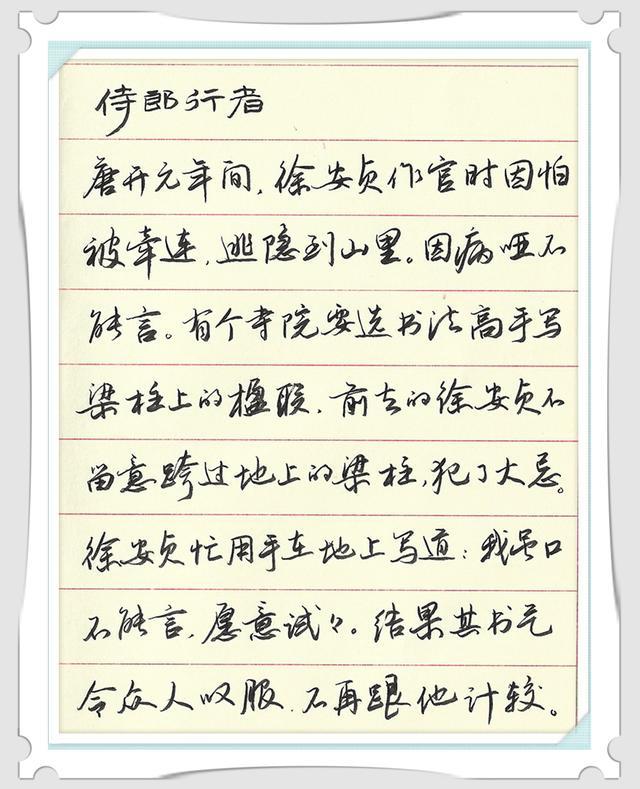 侍郎行者
唐开元年间,徐安贞作官时因怕
被牵连,逃隐到山里。因病哑不
能言。有个寺院要选书法高手写
梁柱上的楹联,前去的徐安贞不
留意跨过地上的梁柱,犯了大忌。
徐安贞忙用手在地上写道:我虽口
不能言,愿意试々。结果其书艺
令众人叹服,不再跟他计较。